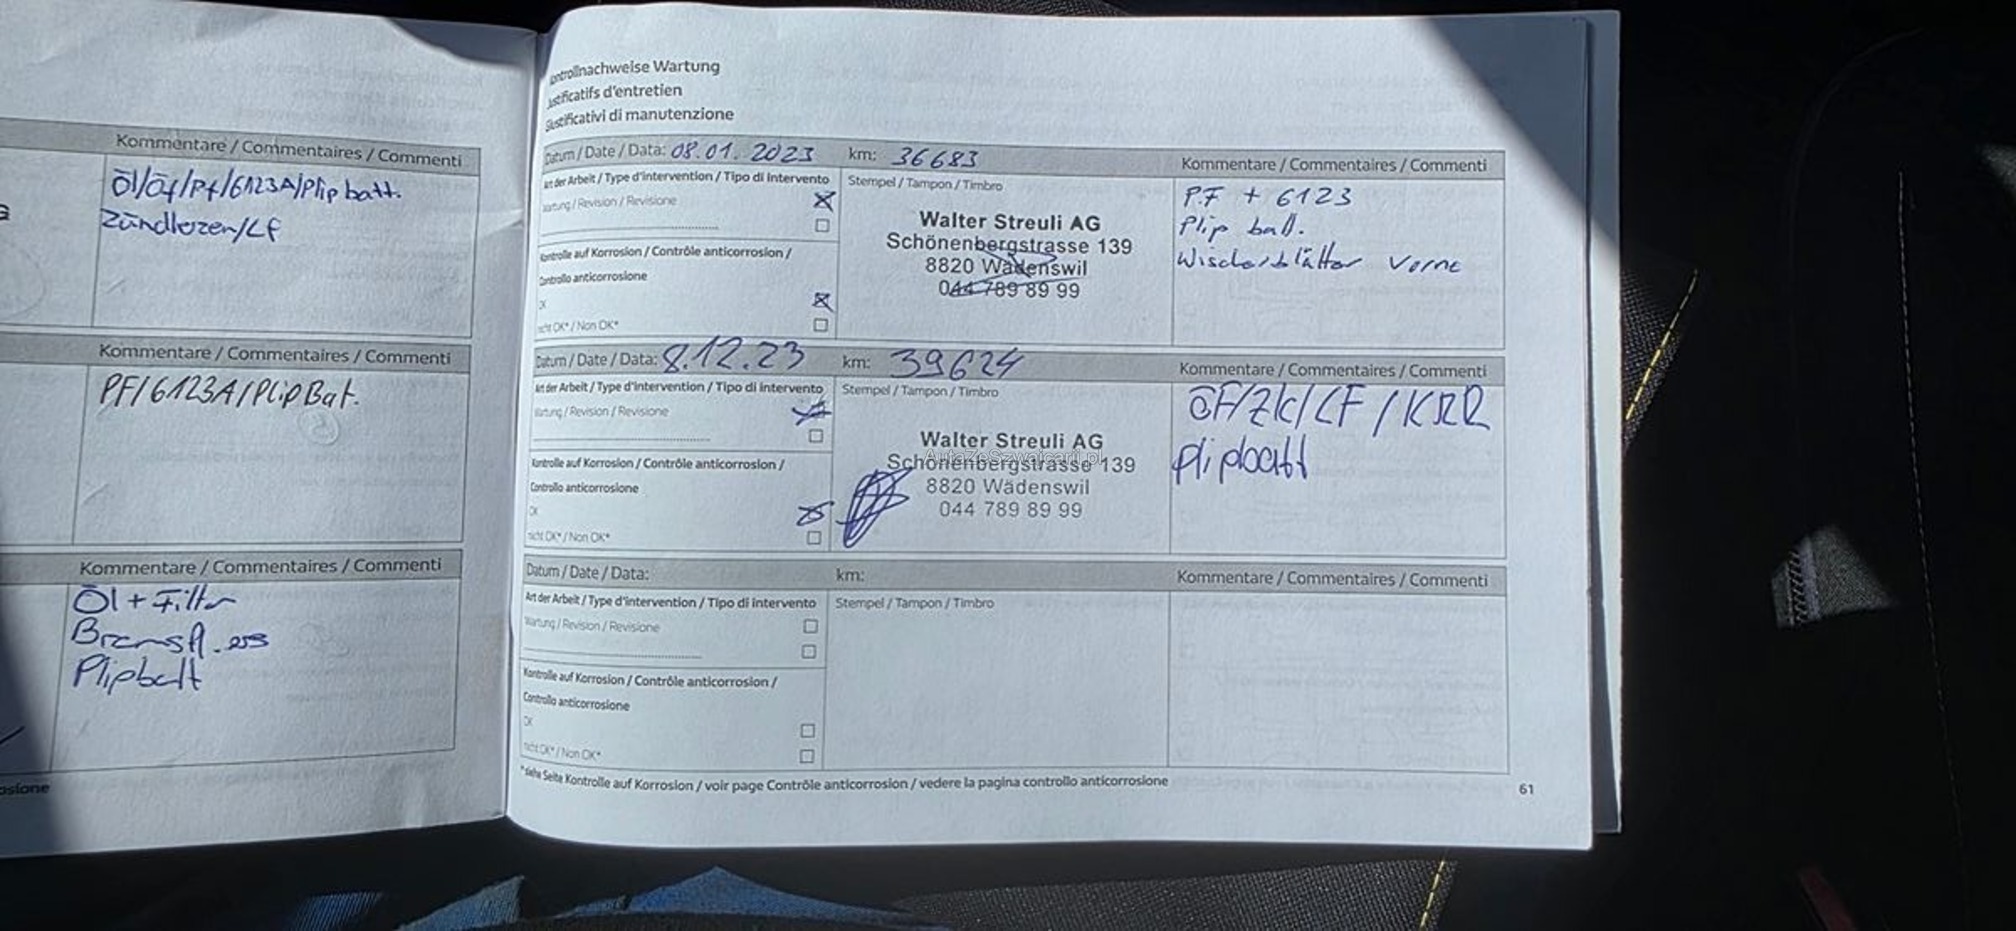 Kommentare / Commentaires / Commenti
Öl/Öf/Pf/6123A/Plip batt.
Zündkerzen/LF
Kommentare / Commentaires / Commenti
PF/6123A/PlipBat.
Kommentare / Commentaires / Commenti
Öl + Filter
Bremsfl.
Plipbatt
osione
ntrollnachweise Wartung
Justificatifs d'entretien
Giustificativi di manutenzione
Datum / Date / Data: 08.01.2023 km: 36683 Kommentare / Commentaires / Commenti
Art der Arbeit / Type d'intervention / Tipo di intervento Stempel / Tampon / Timbro
Wartung / Revision / Revisione
Kontrolle auf Korrosion / Contrôle anticorrosion /
Controllo anticorrosione
OK
nicht OK* / Non OK*
Walter Streuli AG
Schönenbergstrasse 139
8820 Wädenswil
044 789 89 99
P.F + 6123
Plip batt.
Wischerblätter vorne
Datum / Date / Data: 8.12.23 km: 39624 Kommentare / Commentaires / Commenti
Art der Arbeit / Type d'intervention / Tipo di intervento Stempel / Tampon / Timbro
Wartung / Revision / Revisione
Kontrolle auf Korrosion / Contrôle anticorrosion /
Controllo anticorrosione
OK
nicht OK* / Non OK*
Walter Streuli AG
Schönenbergstrasse 139
AutaZeSzwajcarii.pl
8820 Wädenswil
044 789 89 99
ÖF/ZK/LF/
Plipbatt
Datum / Date / Data: km: Kommentare / Commentaires / Commenti
Art der Arbeit / Type d'intervention / Tipo di intervento Stempel / Tampon / Timbro
Wartung / Revision / Revisione
Kontrolle auf Korrosion / Contrôle anticorrosion /
Controllo anticorrosione
OK
nicht OK* / Non OK*
*siehe Seite Kontrolle auf Korrosion / voir page Contrôle anticorrosion / vedere la pagina controllo anticorrosione
61